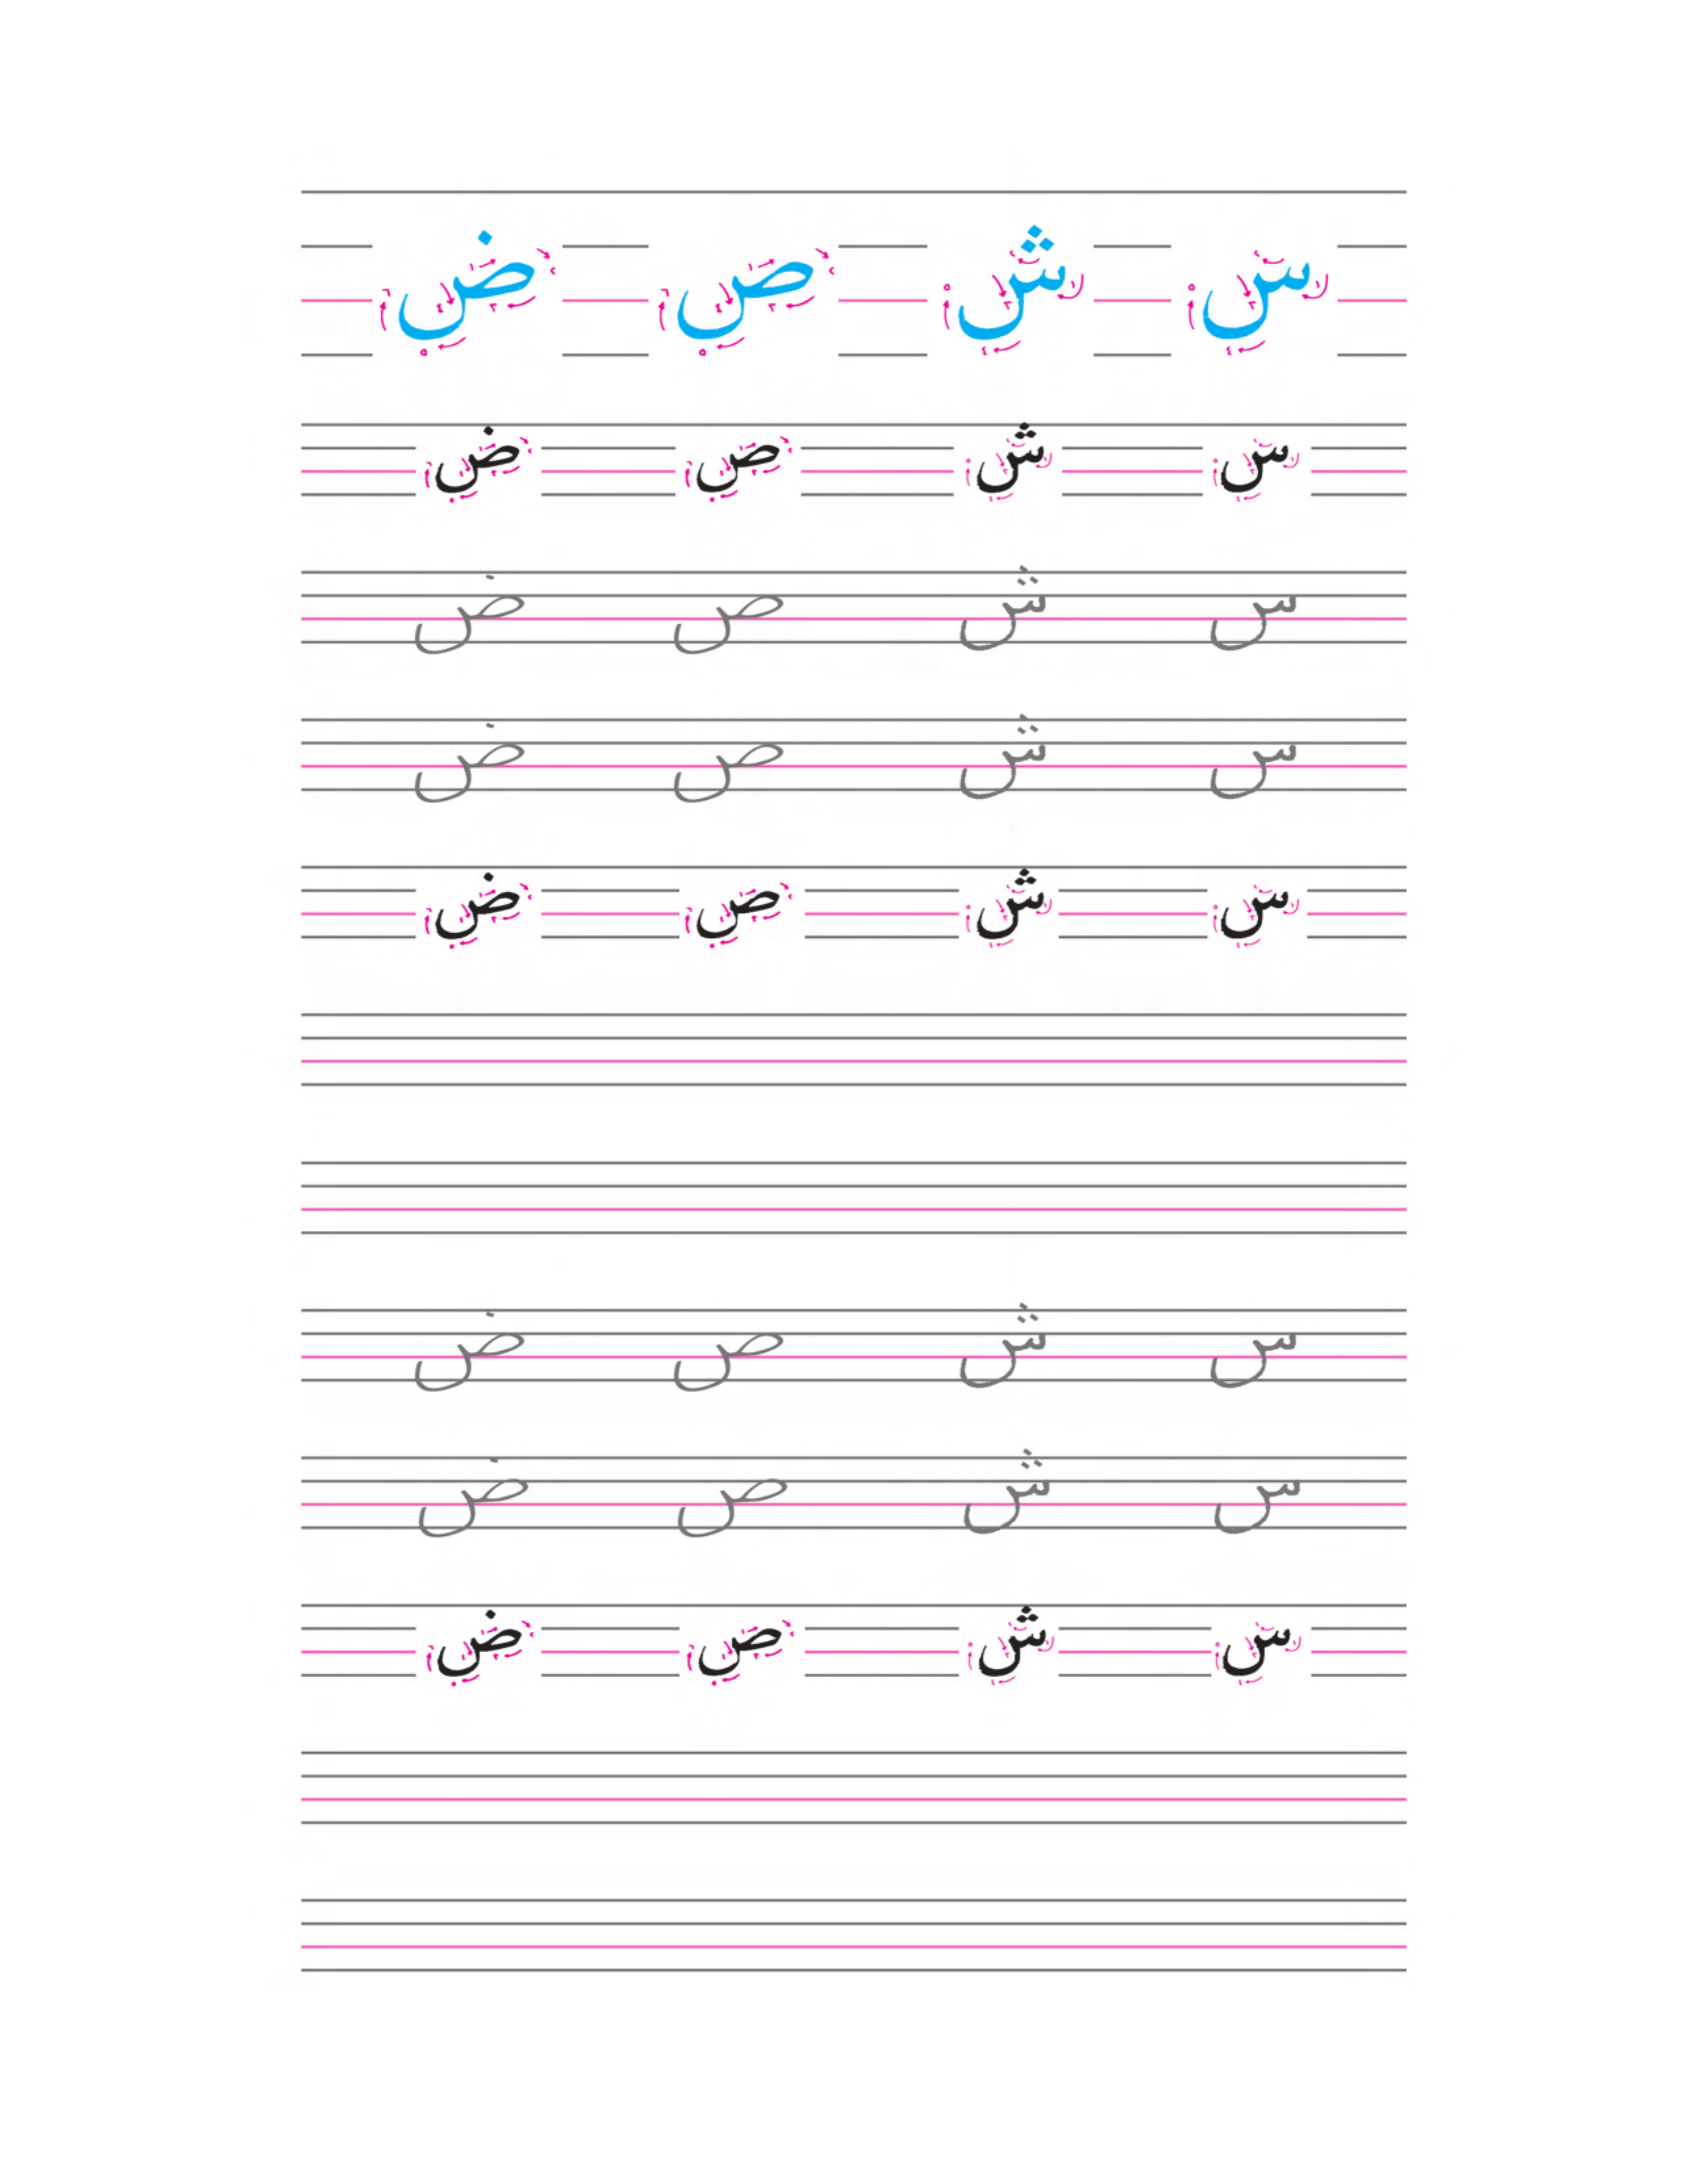 س ش ص ض
س ش ص ض
س ش ص ض
س ش ص ض
س ش ص ض
س ش ص ض
س ش ص ض
س ش ص ض